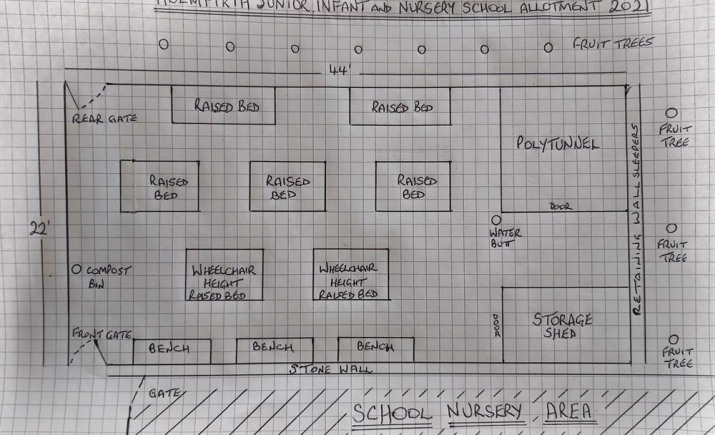 HOLMFIRTH JUNIOR, INFANT AND NURSERY SCHOOL ALLOTMENT 2021
FRUIT TREES
44'
RAISED BED
RAISED BED
REAR GATE
POLYTUNNEL
DOOR
RETAINING WALL SLEEPERS
FRUIT
TREE
RAISED
BED
RAISED
BED
RAISED
BED
22'
WATER
BUTT
FRUIT
TREE
COMPOST
BIN
WHEELCHAIR
HEIGHT
RAISED BED
WHEELCHAIR
HEIGHT
RAISED BED
DOOR
STORAGE
SHED
FRONT GATE
BENCH
BENCH
BENCH
FRUIT
TREE
STONE WALL
GATE
SCHOOL NURSERY AREA